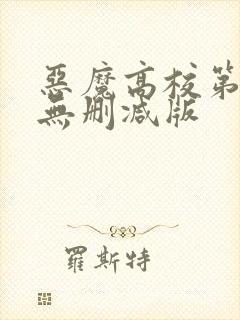 惡魔高校第
無刪减版
羅斯特